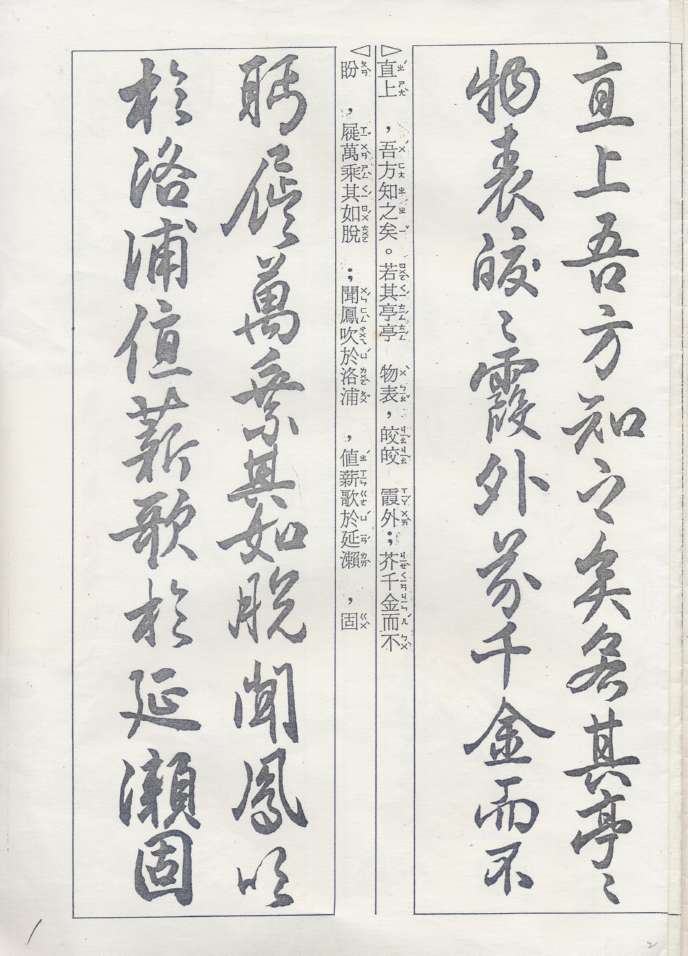 直上吾方知之矣若其亭〻
物表皎〻霞外芥千金而不
▷直上，吾方知之矣。若其亭亭 物表，皎皎 霞外；芥千金而不
◁盼，屣萬乘其如脫；聞鳳吹於洛浦，值薪歌於延瀨，固
眄屣萬乘其如脫聞鳳吹
於洛浦值薪歌於延瀨固
2